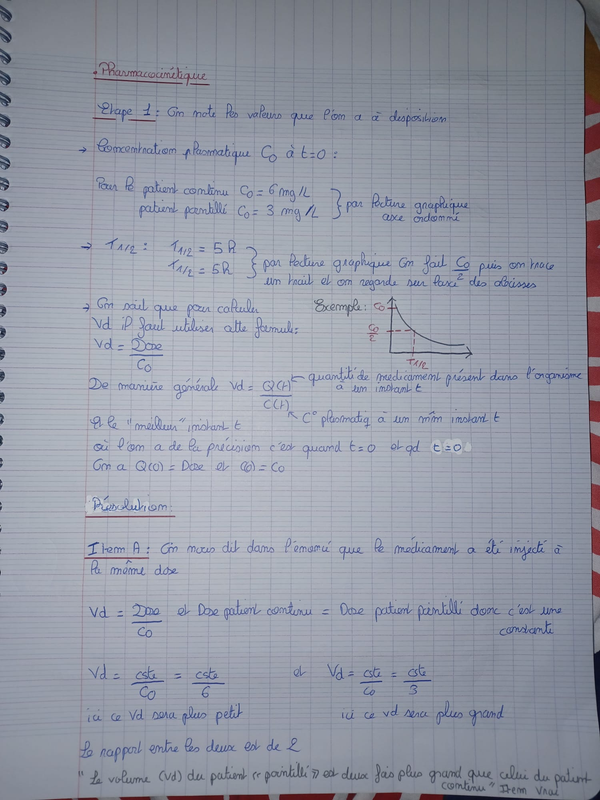 . Pharmacocinétique
Etape 1 : On note les valeurs que l'on a à disposition
→ Concentration plasmatique C0 à t=0 :
Pour le patient continu C0 = 6 mg/L
patient pointillé C0 = 3 mg/L } par lecture graphique
axe ordonné
→ T1/2 : T1/2 = 5h
T1/2 = 5h } par lecture graphique On fait C0/2 puis on trace
un trait et on regarde sur l'axe des abcisses
→ On sait que pour calculer
Vd il faut utiliser cette formule :
Vd = Dose/C0
Exemple : C0
C0/2
T1/2
De manière générale Vd = Q(t)/C(t) ← quantité de médicament présent dans l'organisme
à un instant t
C° plasmatiq à un mm instant t
Et le "meilleur" instant t
où l'on a de la précision c'est quand t=0 et qd t=0
On a Q(0) = Dose et C(0) = C0
Résolution
Item A : On nous dit dans l'énoncé que le médicament a été injecté à
la même dose
Vd = Dose/C0 et Dose patient continu = Dose patient pointillé donc c'est une
constante
Vd = cste/C0 = cste/6 et Vd = cste/C0 = cste/3
ici ce Vd sera plus petit ici ce vd sera plus grand
Le rapport entre les deux est de 2
"Le volume (Vd) du patient « pointillé » est deux fois plus grand que celui du patient
continu" Item vrai